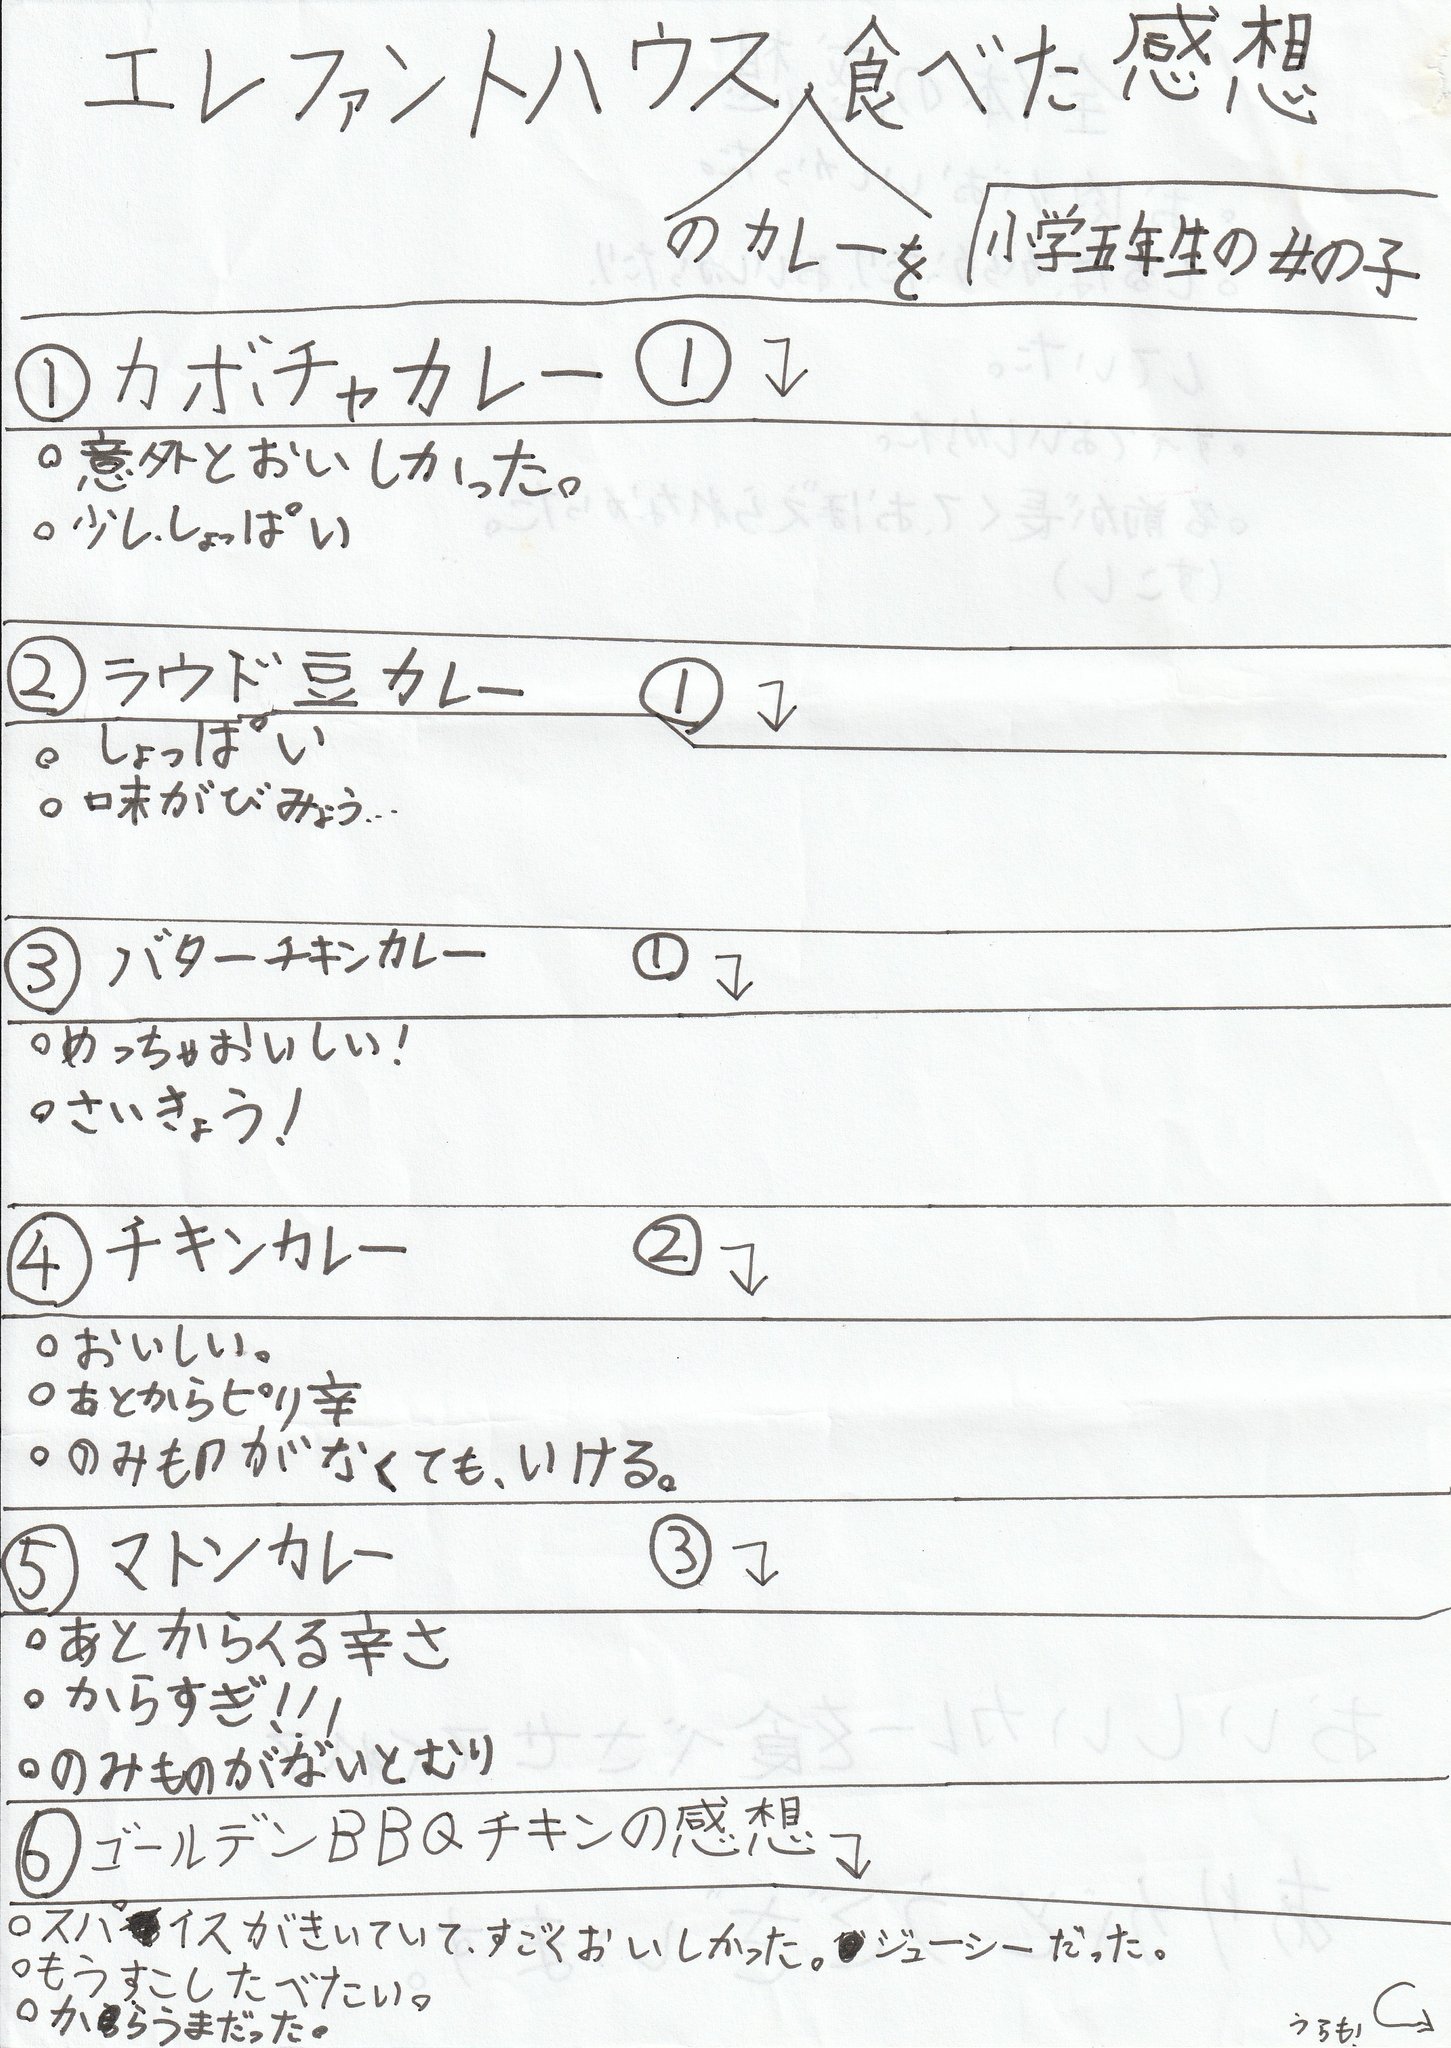 エレファントハウス食べた感想
のカレーを
小学五年生の女の子
① カボチャカレー ① ↴
○意外とおいしかった。
○少ししょっぱい
② ラウド豆カレー ① ↴
○しょっぱい
○味がびみょう…
③ バターチキンカレー ① ↴
○めっちゃおいしい!
○さいきょう!
④ チキンカレー ② ↴
○おいしい。
○あとからピリ辛
○のみものがなくても、いける。
⑤ マトンカレー ③ ↴
○あとからくる辛さ
○からすぎ!!!
○のみものがないとむり
⑥ ゴールデンBBQチキンの感想 ↴
○スパイスがきいていて、すごくおいしかった。ジューシーだった。
○もうすこしたべたい。
○からうまだった。
うらも!